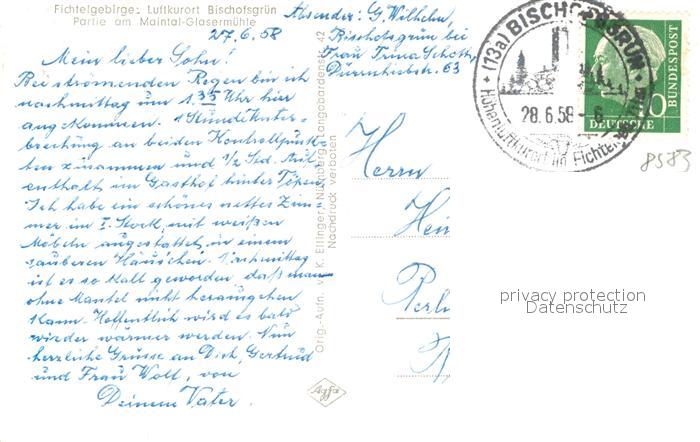 Fichtelgebirge: Luftkurort Bischofsgrün
Partie am Maintal-Glasermühle
27.6.58
Absender: G. Wilhelm,
Bischofsgrün bei
Frau Trina Schoth,
63
Mein lieber Sohn!
Bei strömenden Regen bin ich
nachmittag um 1.35 Uhr hier
angekommen. 1 Stunde Unter-
brechung an beiden Kontrollpunk-
ten zusammen und 1/2 Std. Auf-
enthalt im Gasthof hinter Töpen.
Ich habe ein schönes nettes Zim-
mer im I. Stock, mit weißen
Möbeln ausgestattet, in einem
sauberen Häuschen. Nachmittag
ist es so kalt geworden, daß man
ohne Mantel nicht herausgehen
kann. Hoffentlich wird es bald
wieder wärmer werden. Nun
herzliche Grüsse an Dich, Gertrud
und Frau Woll, von
Deinem Vater.
Orig.-Aufn. v. K. Ettlinger, Nürnberg, Langobardenstr. 42
Nachdruck verboten
Agfa
Herrn
Hein
Berl
(13a) BISCHOFSGRÜN
28.6.58
Höhenluftkurort im Fichtel
DEUTSCHE
BUNDESPOST
10
8583
privacy protection
Datenschutz